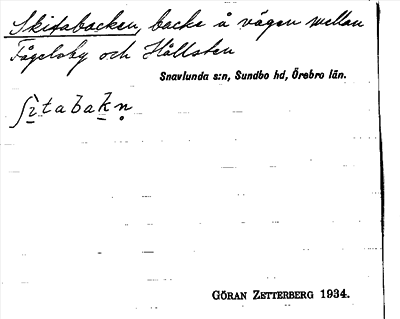 Skitabacken, backe å vägen mellan
Fågelsby och Hållsten
Snavlunda s:n, Sundbo hd, Örebro län.
ʃìtabakn̥
GÖRAN ZETTERBERG 1934.